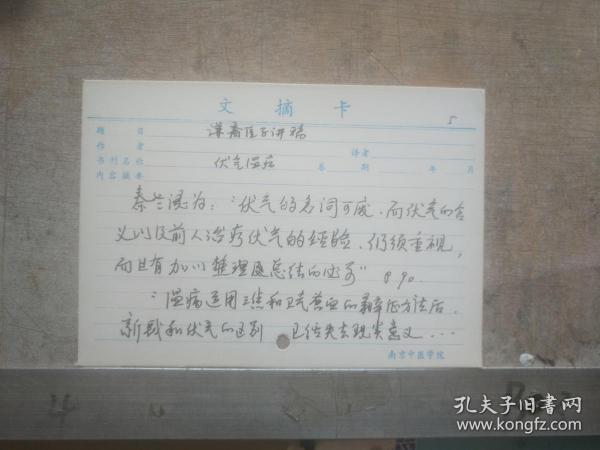 文摘卡
5
题目 谦斋医学讲稿
作者 译者
书刊名称 伏气温病 卷期 年 月
内容摘要
秦兰认为："伏气的名词可废,而伏气的含
义以及前人治疗伏气的经验,仍须重视,
而且有加以整理及总结的必要" P90.
"温病运用三焦和卫气营血的辨证方法后,
新感和伏气的区别 已经失去现实意义...
南京中医学院
孔夫子旧书网
www.kongfz.com